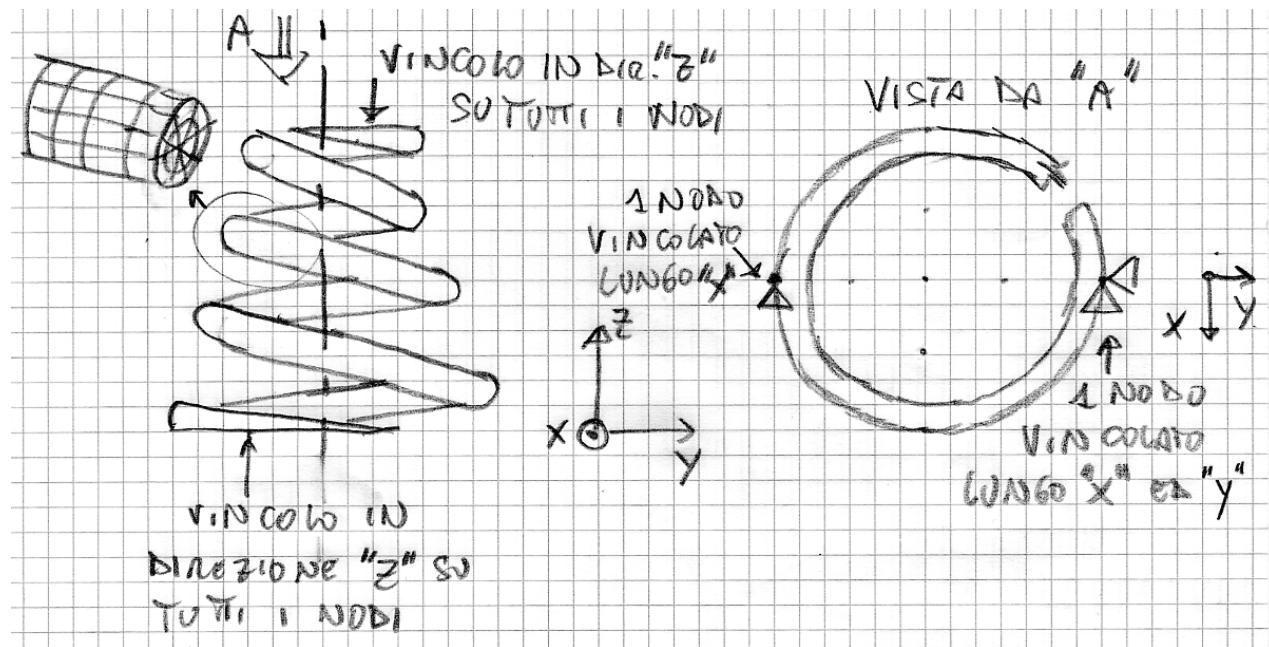 A
VINCOLO IN DIR. "Z"
SU TUTTI I NODI
VISTA DA "A"
1 NODO
VINCOLATO
LUNGO "X"
Z
X
Y
X
Y
1 NODO
VINCOLATO
LUNGO "X" ED "Y"
VINCOLO IN
DIREZIONE "Z" SU
TUTTI I NODI